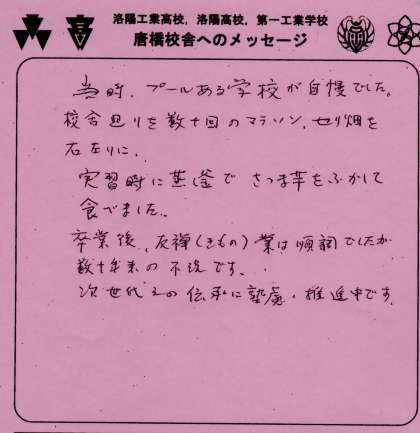 洛陽工業高校，洛陽高校，第一工業学校
唐橋校舎へのメッセージ
当時、プールある学校が自慢でした。
校舎廻りを数十回のマラソン、セリ畑を
右左りに、
実習時に蒸し釜で さつま芋をふかして
食べました。
卒業後、友禅(きもの)業は順調でしたが
数十年来の不況です。
次世代えの伝承に塾慮・推進中です